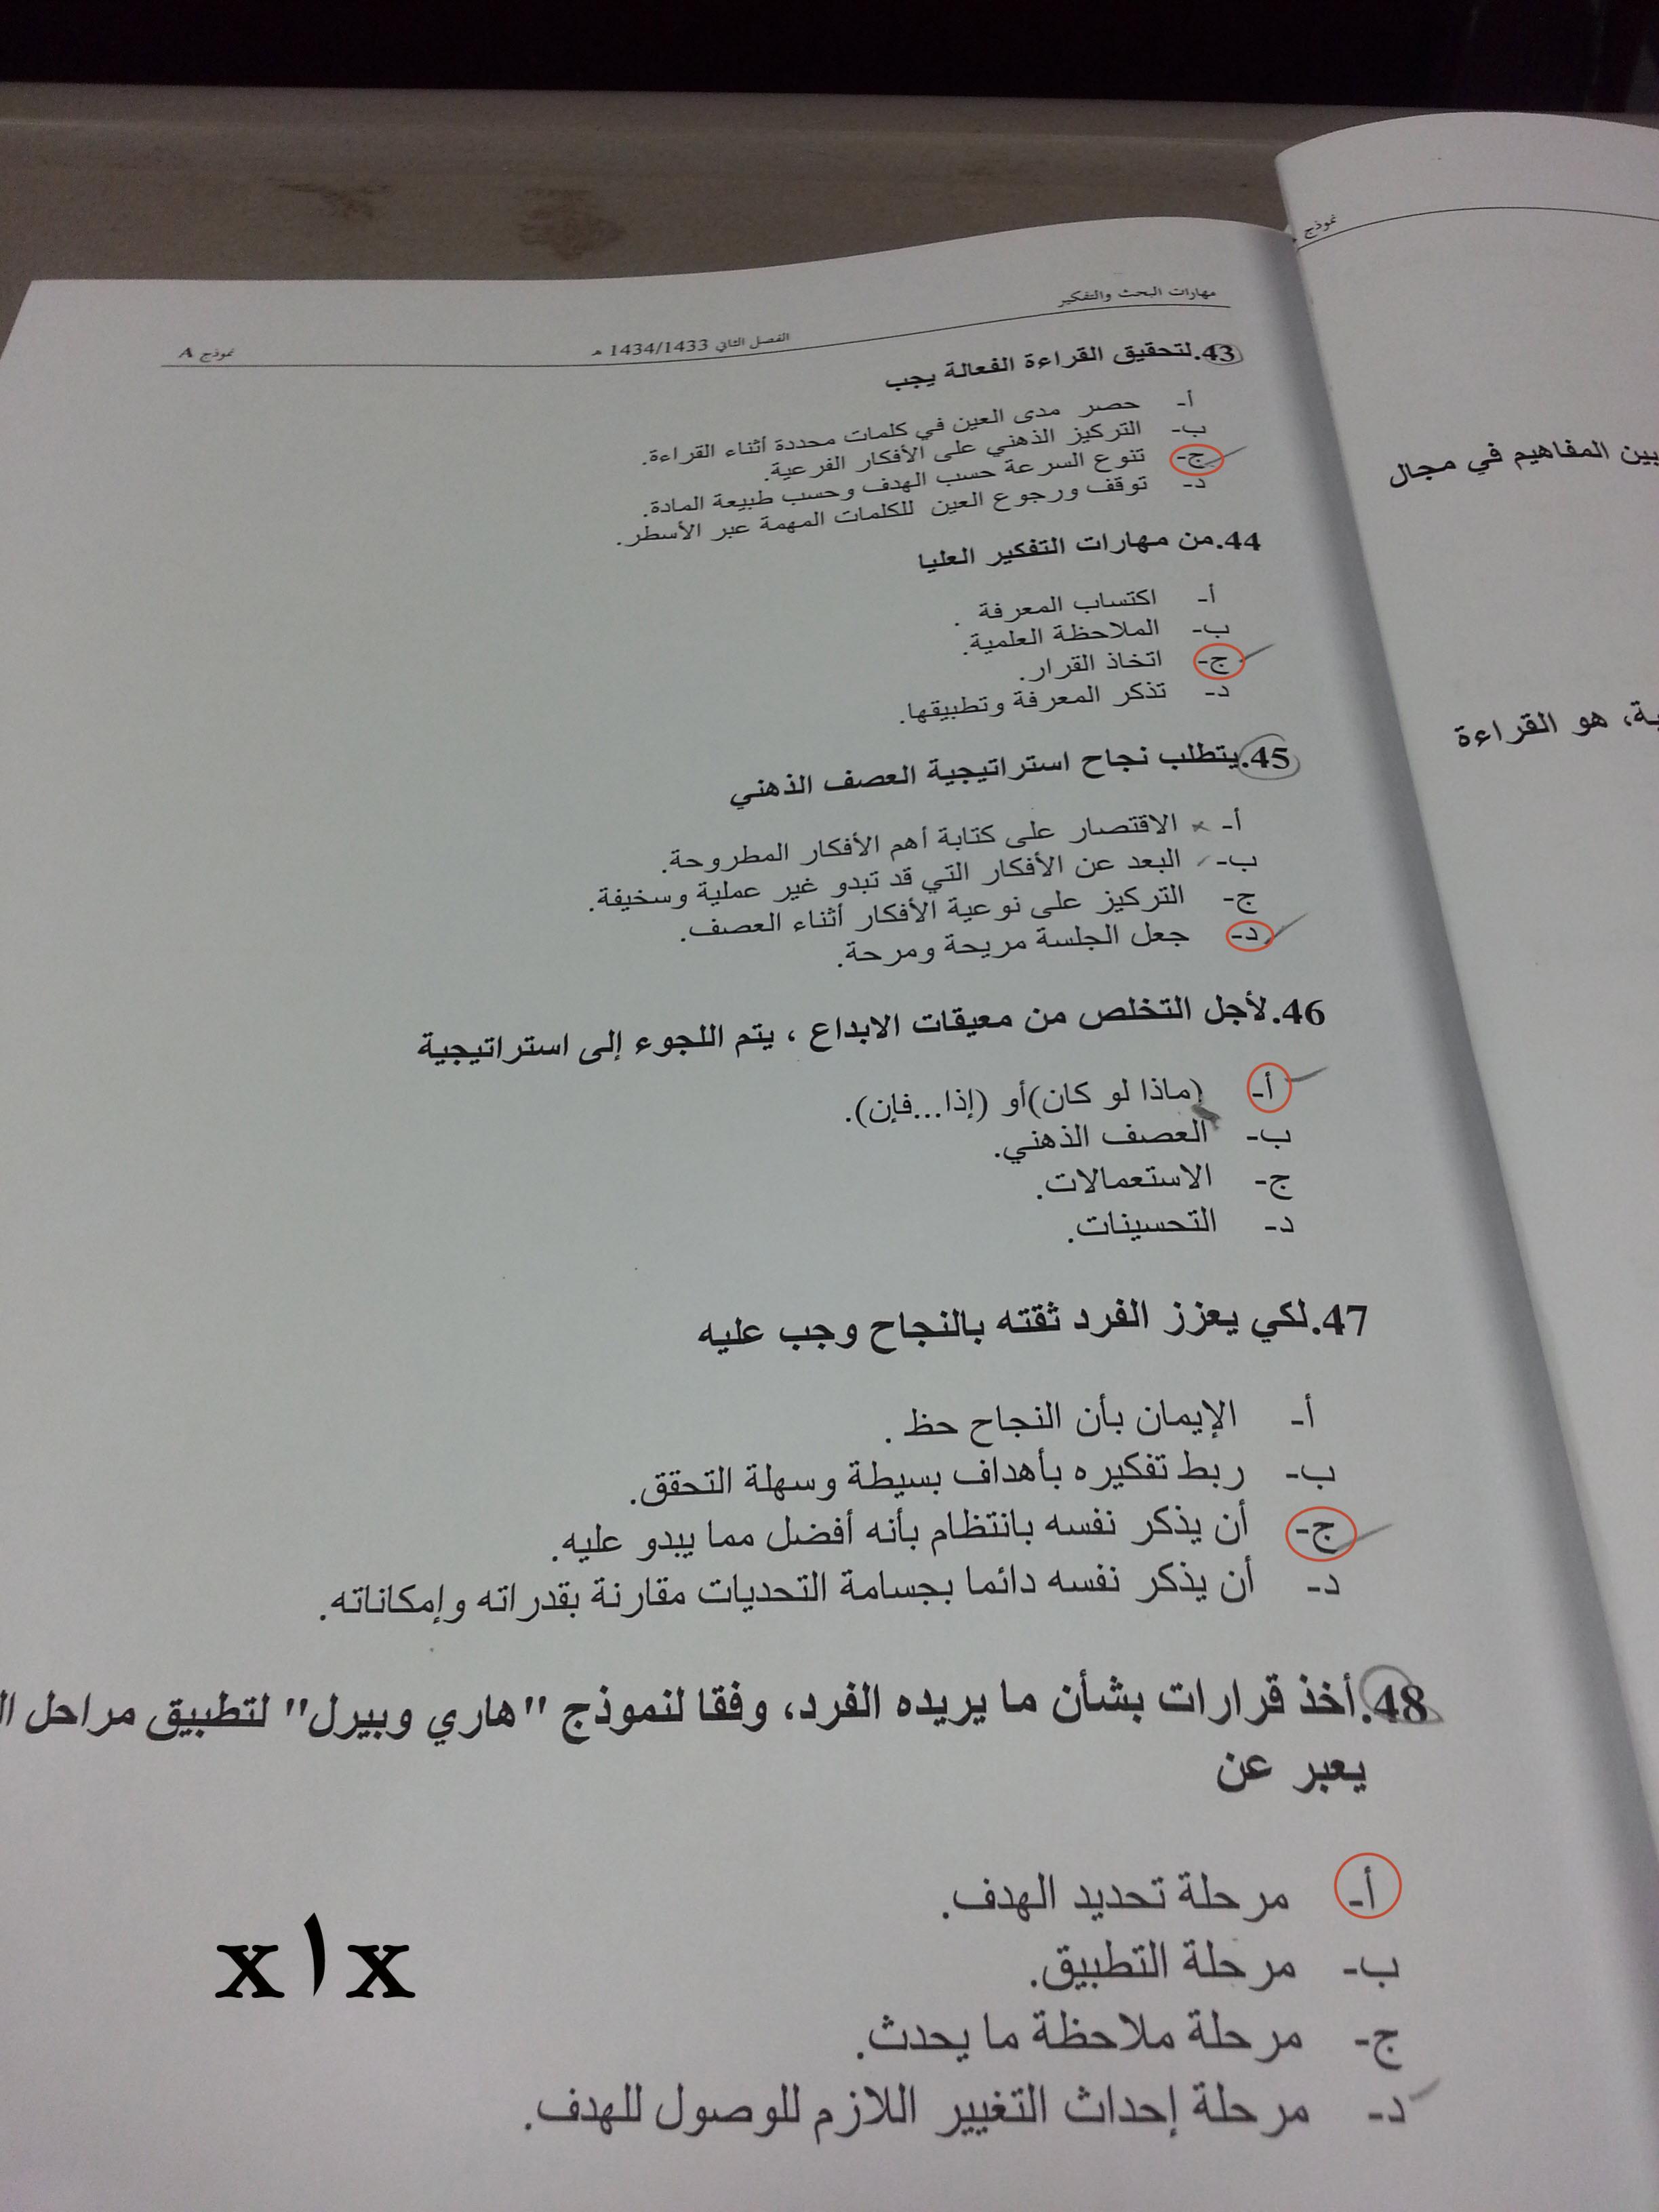 مهارات البحث والتفكير
الفصل الثاني 1434/1433 هـ
نموذج A
43.لتحقيق القراءة الفعالة يجب
أ- حصر مدى العين في كلمات محددة أثناء القراءة.
ب- التركيز الذهني على الأفكار الفرعية.
ج- تنوع السرعة حسب الهدف وحسب طبيعة المادة.
د- توقف ورجوع العين للكلمات المهمة عبر الأسطر.
44.من مهارات التفكير العليا
أ- اكتساب المعرفة .
ب- الملاحظة العلمية.
ج- اتخاذ القرار.
د- تذكر المعرفة وتطبيقها.
45.يتطلب نجاح استراتيجية العصف الذهني
أ- الاقتصار على كتابة أهم الأفكار المطروحة.
ب- البعد عن الأفكار التي قد تبدو غير عملية وسخيفة.
ج- التركيز على نوعية الأفكار أثناء العصف.
د- جعل الجلسة مريحة ومرحة.
46.لأجل التخلص من معيقات الابداع ، يتم اللجوء إلى استراتيجية
أ- (ماذا لو كان)أو (إذا...فإن).
ب- العصف الذهني.
ج- الاستعمالات.
د- التحسينات.
47.لكي يعزز الفرد ثقته بالنجاح وجب عليه
أ- الإيمان بأن النجاح حظ .
ب- ربط تفكيره بأهداف بسيطة وسهلة التحقق.
ج- أن يذكر نفسه بانتظام بأنه أفضل مما يبدو عليه.
د- أن يذكر نفسه دائما بجسامة التحديات مقارنة بقدراته وإمكاناته.
48.أخذ قرارات بشأن ما يريده الفرد، وفقا لنموذج "هاري وبيرل" لتطبيق مراحل
يعبر عن
أ- مرحلة تحديد الهدف.
ب- مرحلة التطبيق.
ج- مرحلة ملاحظة ما يحدث.
د- مرحلة إحداث التغيير اللازم للوصول للهدف.
x١x
نموذج
بين المفاهيم في مجال
هو القراءة